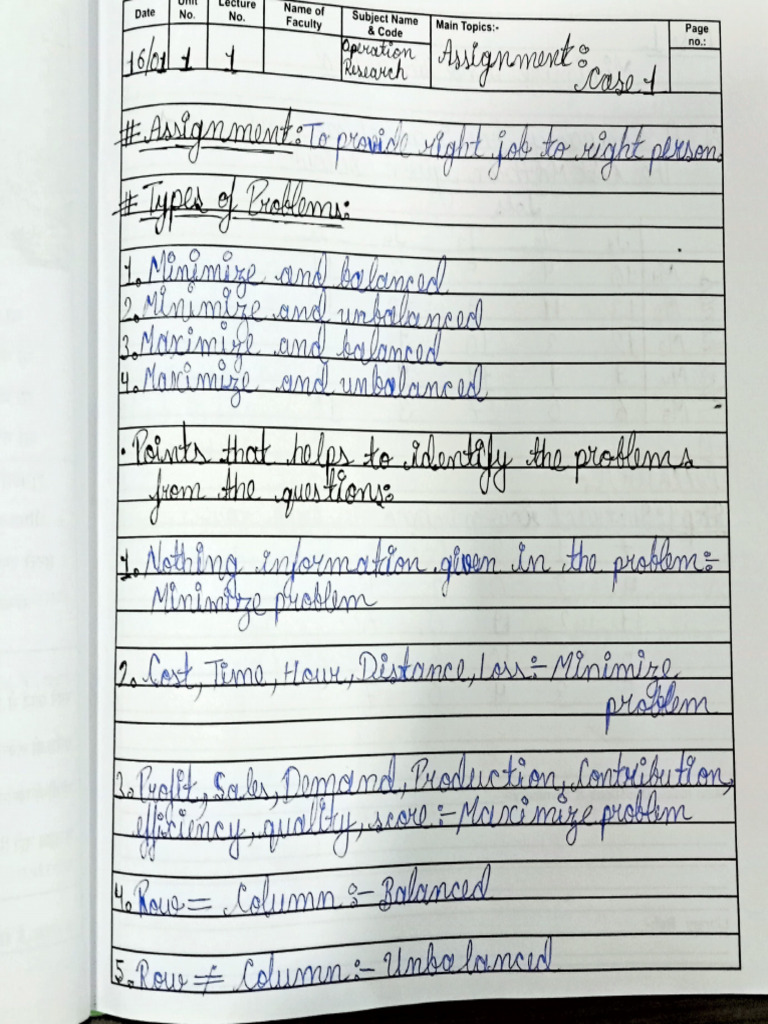 Date
Unit No.
Lecture No.
Name of Faculty
Subject Name & Code
Main Topics:-
Page no.:
16/01
1
1
Operation Research
Assignment:
Case 1
# Assignment: To provide right job to right person.
# Types of Problems:
1. Minimize and balanced
2. Minimize and unbalanced
3. Maximize and balanced
4. Maximize and unbalanced
• Points that helps to identify the problems
from the questions:
1. Nothing information given in the problem:-
Minimize problem
2. Cost, Time, Hour, Distance, Loss:- Minimize
problem
3. Profit, Sales, Demand, Production, Contribution,
efficiency, quality, score:- Maximize problem
4. Row = Column:- Balanced
5. Row ≠ Column:- Unbalanced